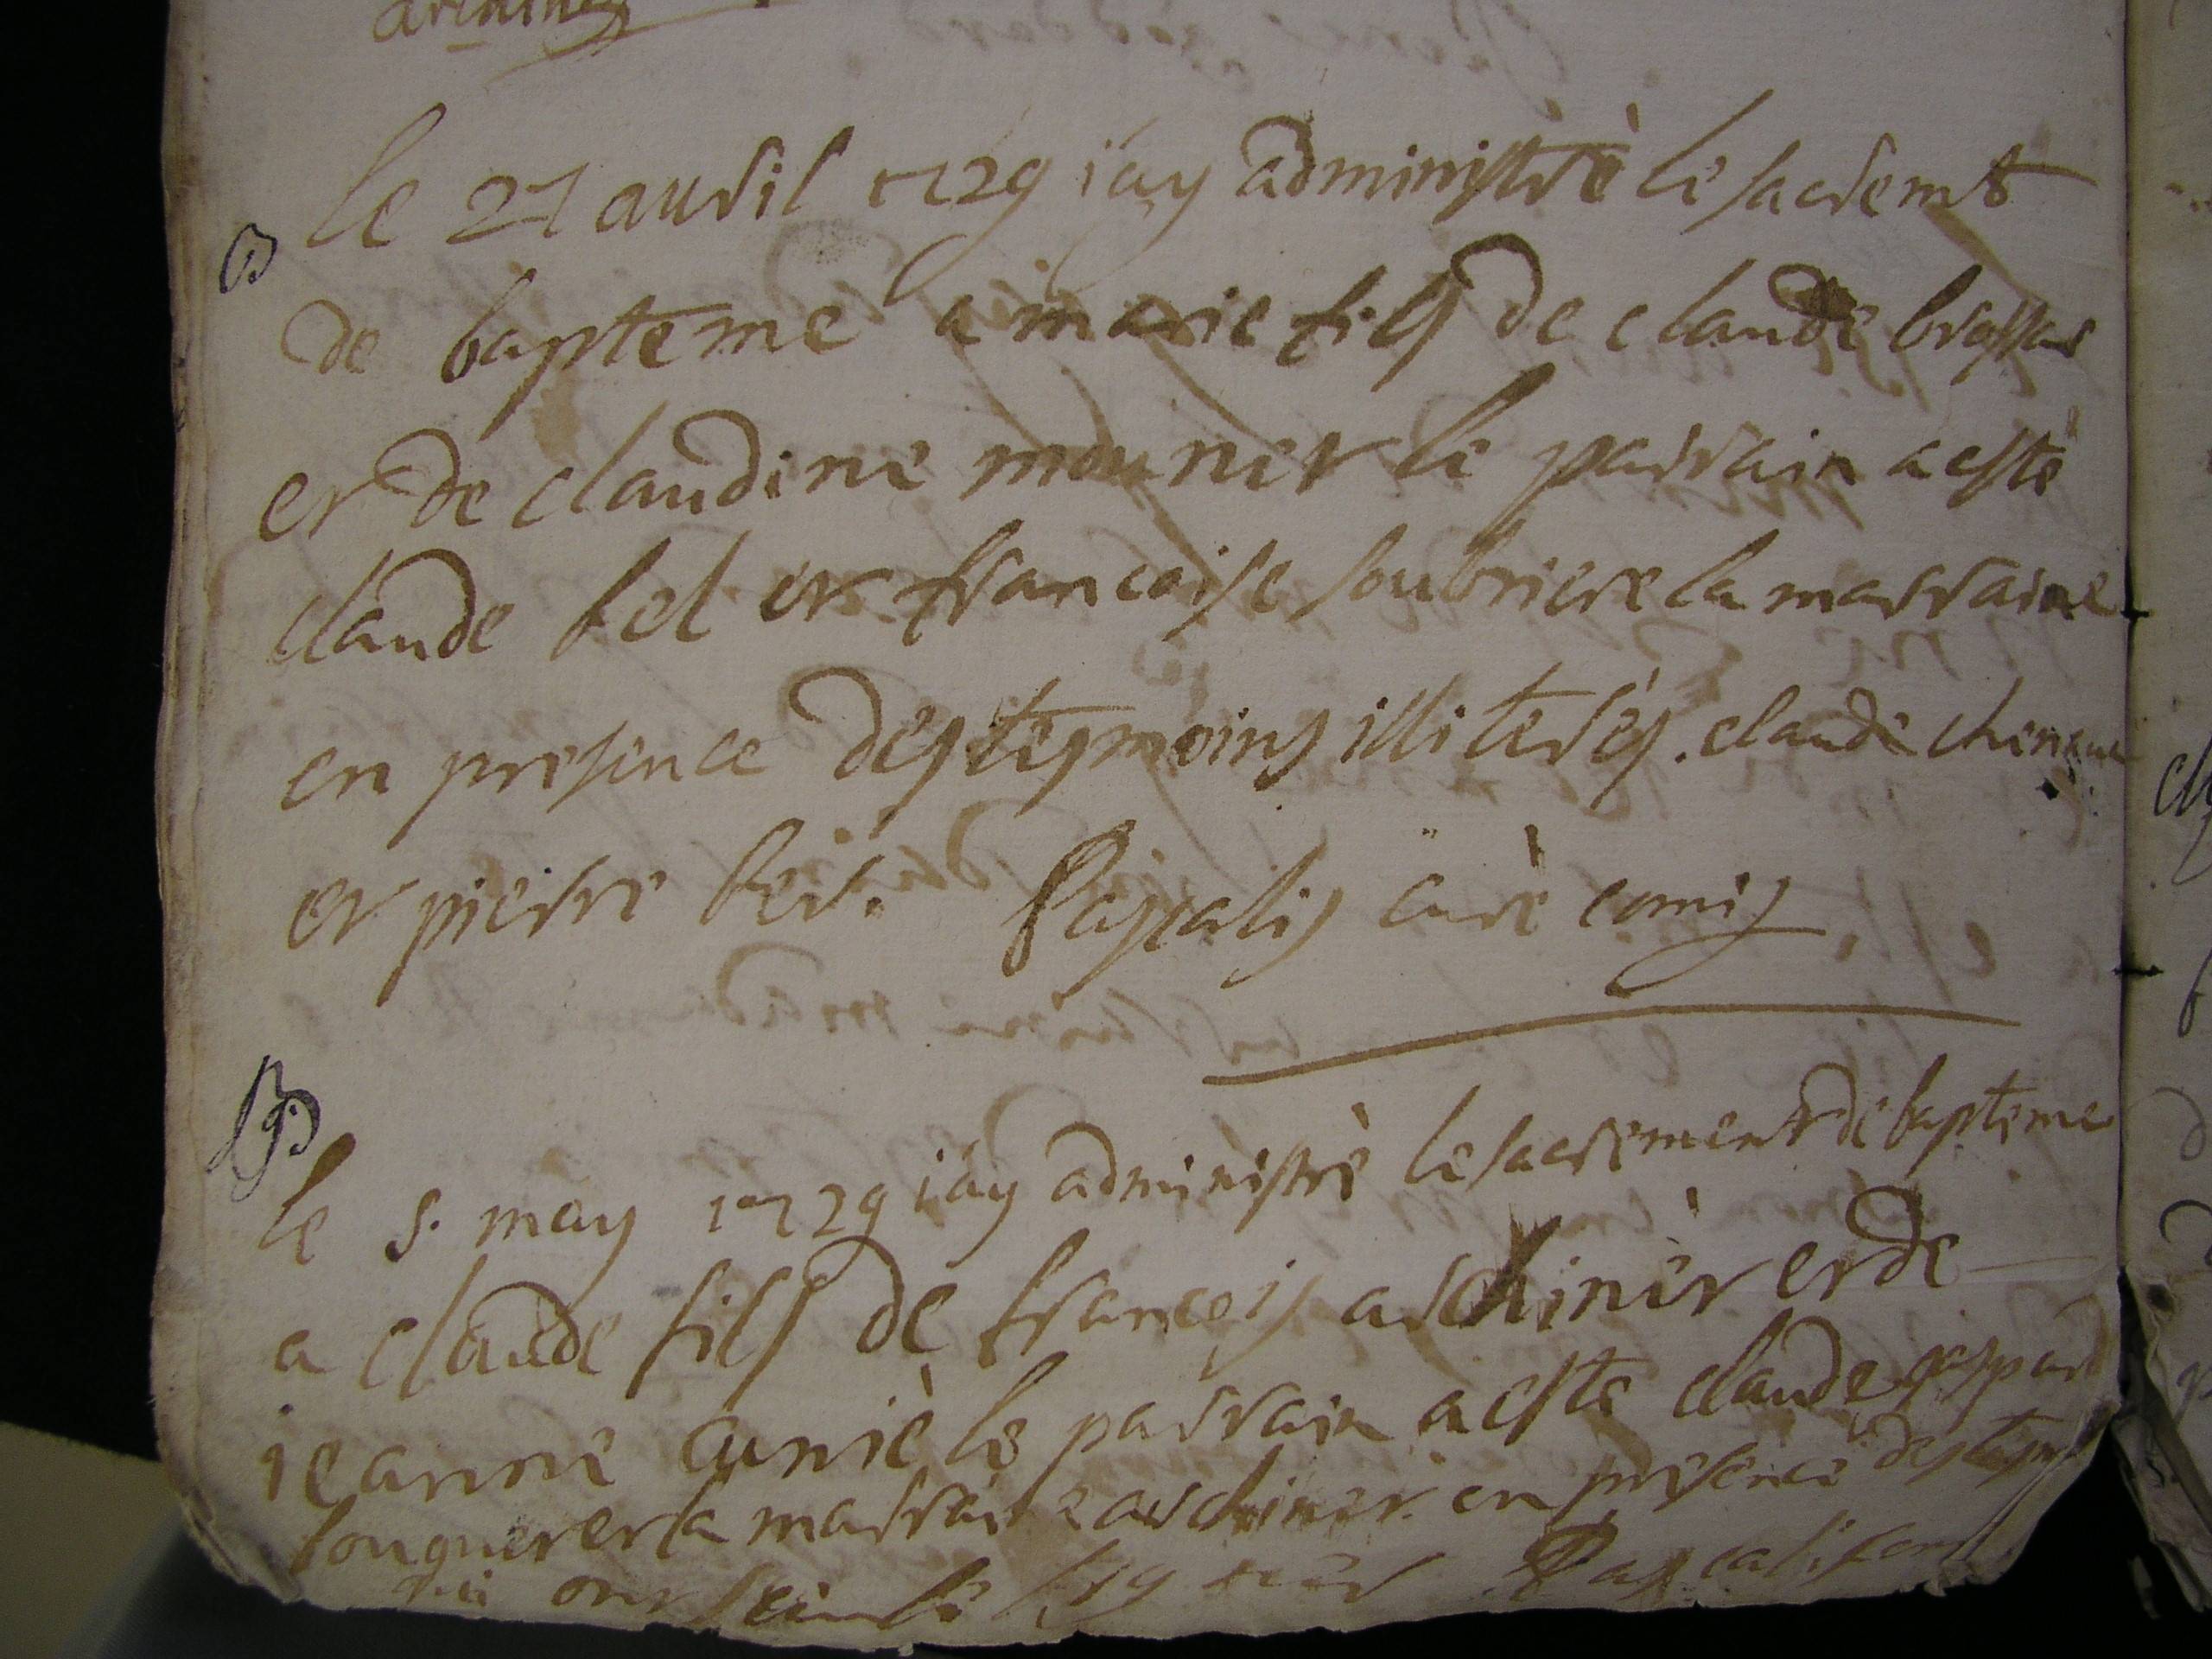 le 27 avril 1729 iay administrè le sacremt
B
de bapteme a marie fils de claude brassac
et de claudine mounier le parrain a estè
claude bel et francoise soubriere la marraine
en presence des tesmoins illiterés. claude
et pierre Pascalis curè comis.
B
le 5. may 1729 iay administrè le sacrement de bapteme
a claude fils de françois aschinèr et de
ieanne cuniè le parrain a este claude gaspard
et la marraine aschiner. en presence des
qui ont Pascalis